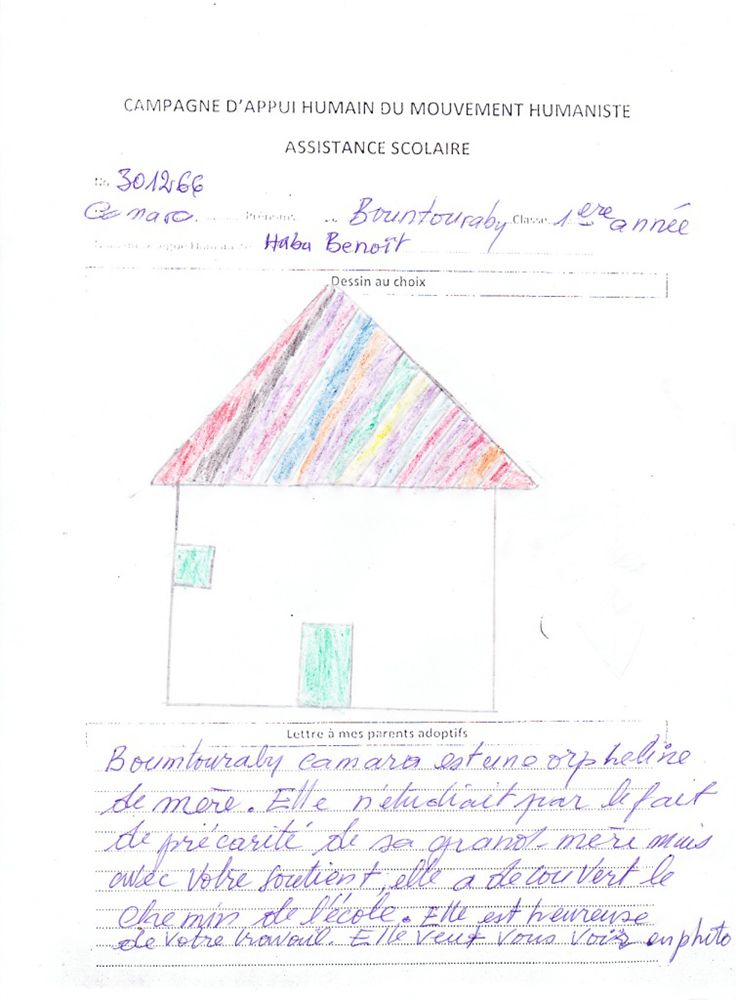 CAMPAGNE D'APPUI HUMAIN DU MOUVEMENT HUMANISTE
ASSISTANCE SCOLAIRE
No 301266
Camara Prénoms Bountouraby Classe 1ere année
Haba Benoît
Dessin au choix
Lettre à mes parents adoptifs
Boumtouraby camara est une orpheline
de mère. Elle n'etudiait par le fait
de précarité de sa grand-mère mais
avec votre soutient, elle a decouvert le
chemin de l'école. Elle est heureuse
de votre travail. Elle veut vous voir en photo